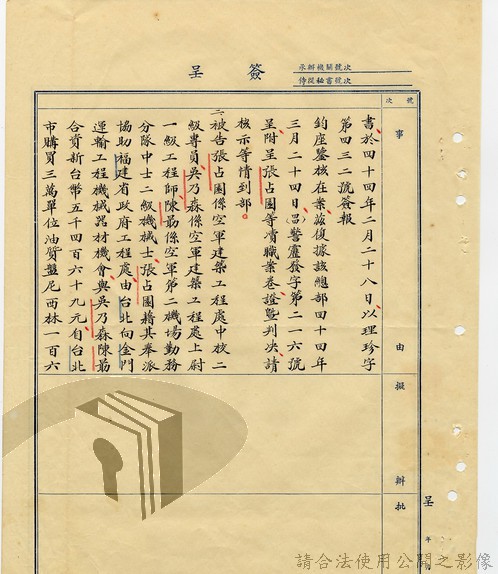 簽呈
承辦機關號次
侍從秘書號次
號次
事由
擬辦
批
呈
年
書於四十四年二月二十八日、以理珍字
第四三二號簽報
鈞座鑒核在案、茲復據該總部四十四年
三月二十四日(昌)警廬發字第二一六號
呈附呈張占團等瀆職案卷、證暨判決請
核示等情到部。
二、被告張占團係空軍建築工程處中校二
級專員吳乃森係空軍建築工程處上尉
一級工程師、陳筋係空軍第二機場勤務
分隊中士二級機械士、張占團將其奉派
協助福建省政府工程處、由台北向金門
運輸工程機械器材機會與吳乃森陳筋
合資新台幣五千四百六十九元、自台北
市購買三萬單位油質盤尼西林一百六
請合法使用公開之影像